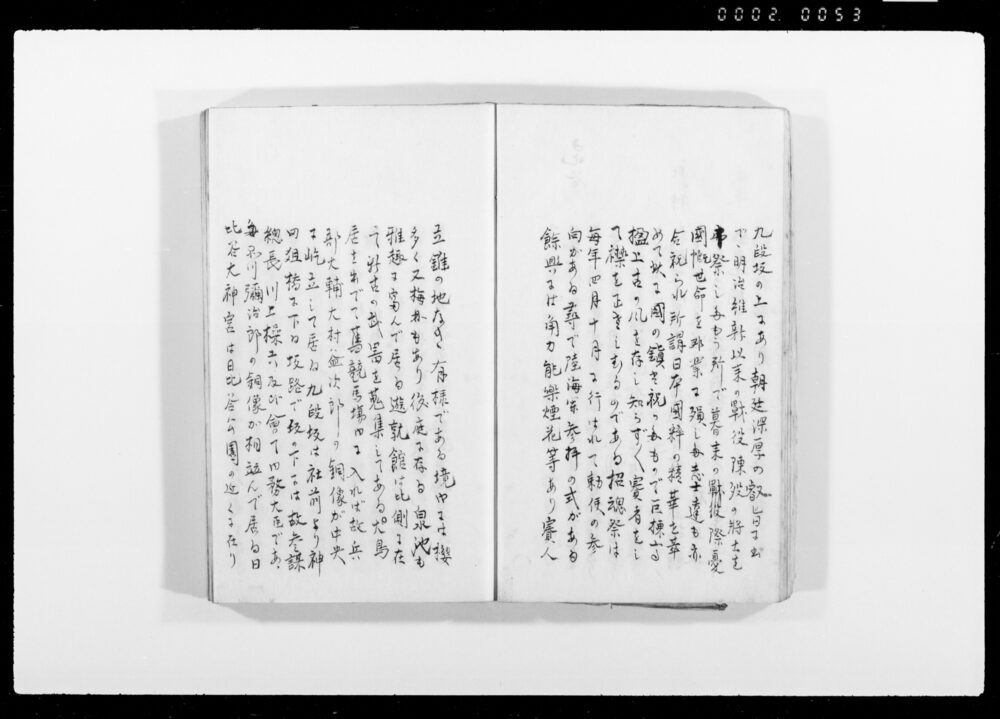 0002.0053
九段坂の上にあり朝廷深厚の叡旨に出
で明治維新以来の戦役陳歿の将士を
祭しあもう所で暮末の戦役際憂
國慨世命を非業に殞しあ志士達も亦
合祀られ所謂日本國粹の精華を萃
めて以て國の鎮を祝つあもので巨棟
楹上古の風を存し知らずく賽者をし
て襟を正さしむるのである招魂祭は
毎年四月十月に行はれて勅使の参
向がある尋で陸海軍参拝の式がある
餘興には角力能樂煙花等あり賽人
立錐の地なき有様である境内には櫻
多く又梅林もあり後庭に存る泉池も
雅趣に富んで居る遊就館は比側に在
て新古の武器を蒐集してある大鳥
居を出でて舊競馬場内に入れば故兵
部大輔大村益次郎の銅像が中央
に屹立して居る九段坂は社前より神
田俎橋に下る坂路で坂の下には故参謀
總長川上操六及び曾て内務大臣であつ
品川彌治郎の銅像が相竝んで居る日
比谷大神宮は日比谷公園の近くに在り